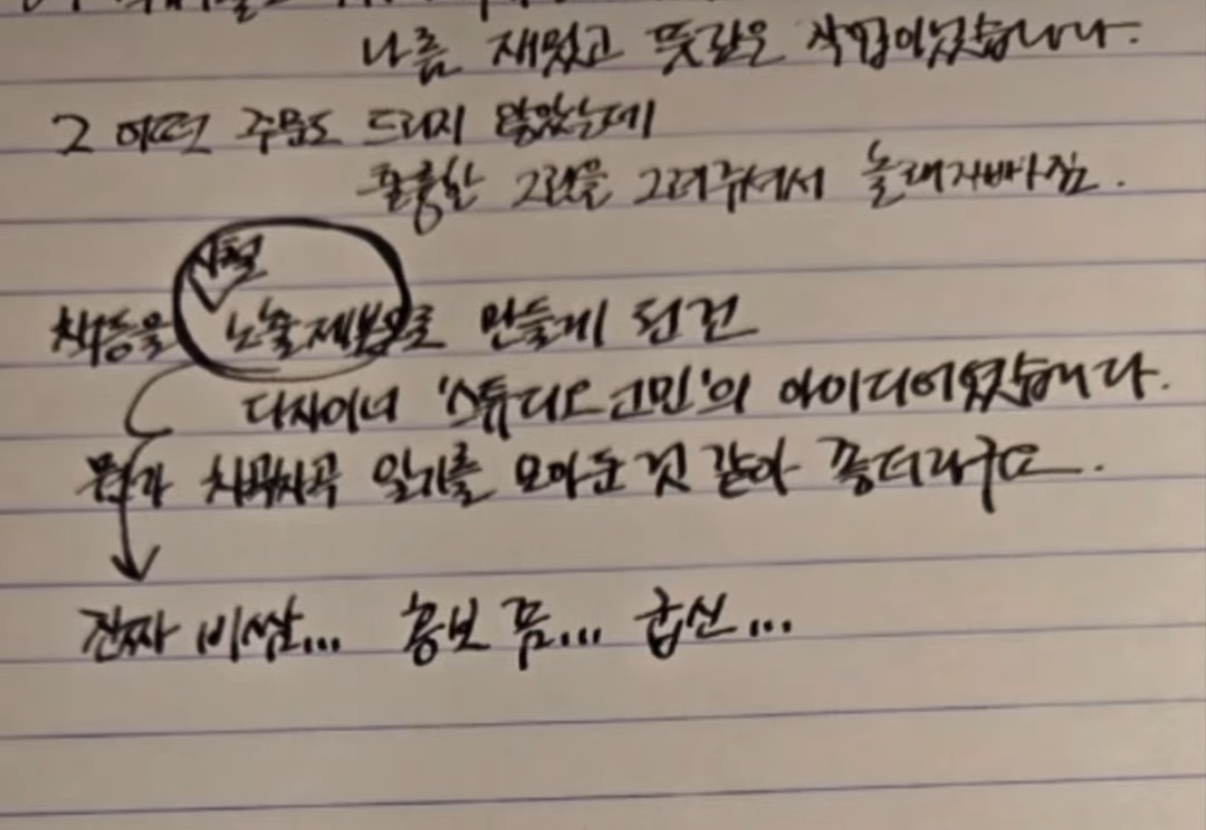 나름 재밌고 뜻깊은 작업이었습니다.
그 어떤 주문도 드리지 않았는데
훌륭한 그림을 그려주셔서 놀래자빠짐.
사철
책등을 노출제본으로 만들게 된건
디자이너 '스튜디오 고민'의 아이디어였습니다.
뭔가 차곡차곡 일기를 모아둔 것 같아 좋더라구요.
진짜 비쌈... 홍보 쫌... 굽신...